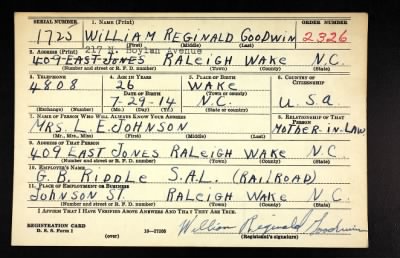 SERIAL NUMBER 1. NAME (Print) ORDER NUMBER
1725 WILLIAM REGINALD GOODWIN 2326
(First) (Middle) (Last)
2. ADDRESS (Print) 217 N. Boylan Avenue
409 EAST JONES RALEIGH WAKE N.C.
(Number and street or R. F. D. number) (Town) (County) (State)
3. TELEPHONE 4. AGE IN YEARS 5. PLACE OF BIRTH 6. COUNTRY OF CITIZENSHIP
4808 26 WAKE
DATE OF BIRTH (Town or county)
7-29-14 N.C. U.S.A.
(Exchange) (Number) (Mo.) (Day) (Yr.) (State or country)
7. NAME OF PERSON WHO WILL ALWAYS KNOW YOUR ADDRESS 8. RELATIONSHIP OF THAT PERSON
MRS. L. E. JOHNSON MOTHER-IN-LAW
(Mr., Mrs., Miss) (First) (Middle) (Last)
9. ADDRESS OF THAT PERSON
409 EAST JONES RALEIGH WAKE N.C.
(Number and street or R. F. D. number) (Town) (County) (State)
10. EMPLOYER'S NAME
G. B. RIDDLE S.A.L. (RAILROAD)
11. PLACE OF EMPLOYMENT OR BUSINESS
JOHNSON ST. RALEIGH WAKE N.C.
(Number and street or R. F. D. number) (Town) (County) (State)
I AFFIRM THAT I HAVE VERIFIED ABOVE ANSWERS AND THAT THEY ARE TRUE.
William Reginald Goodwin
REGISTRATION CARD
D. S. S. Form 1 (over) (Registrant's signature)